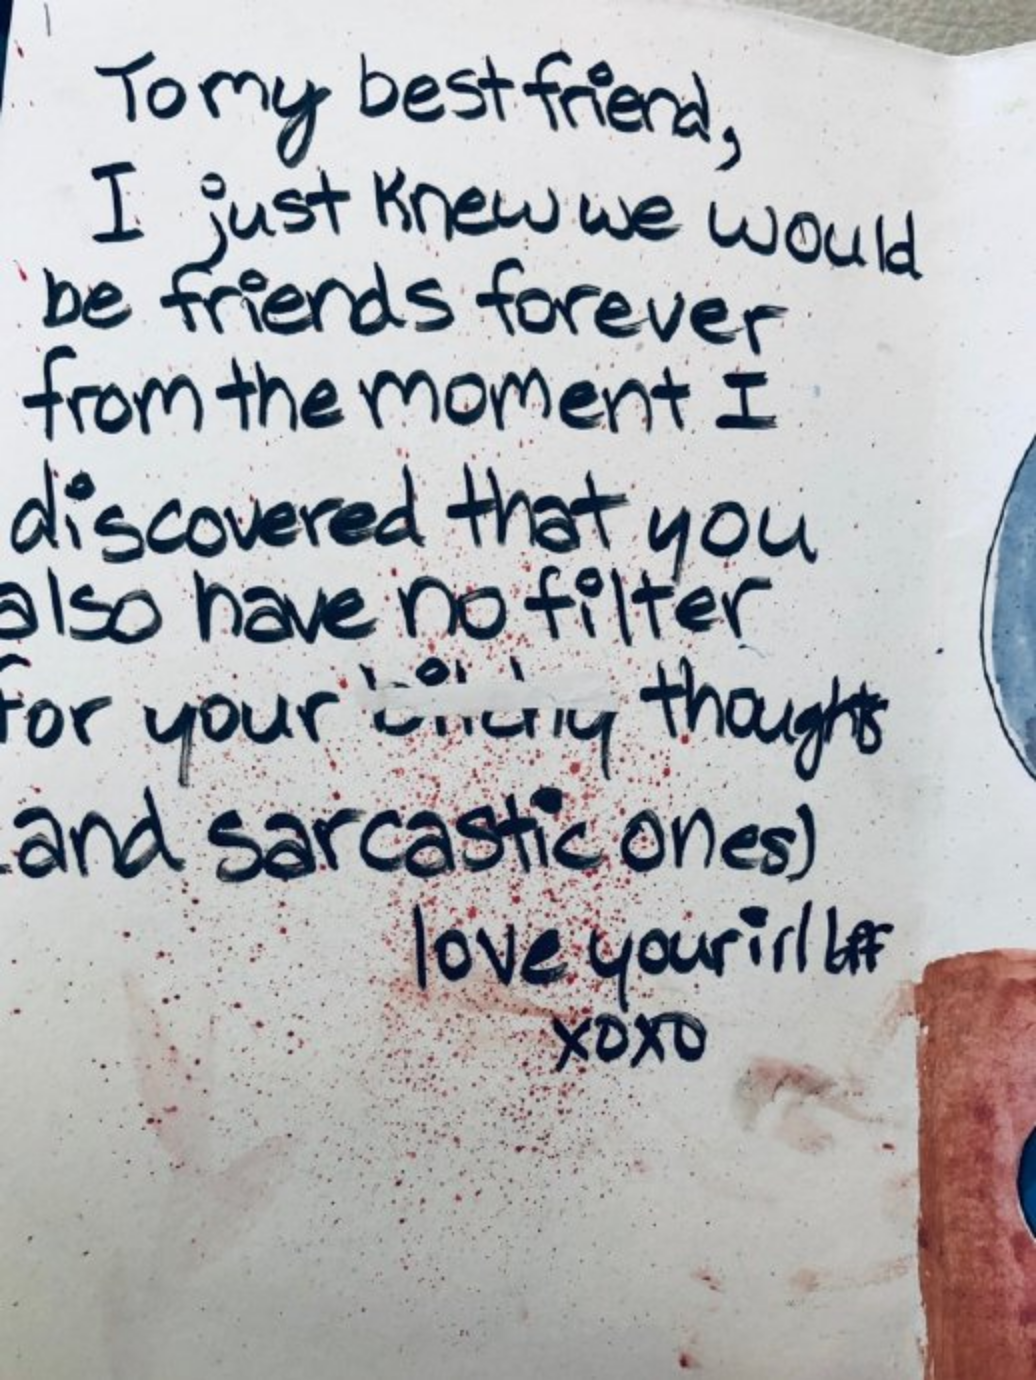 To my best friend,
I just knew we would
be friends forever
from the moment I
discovered that you
also have no filter
for your thoughts
(and sarcastic ones)
love your irl bff
xoxo